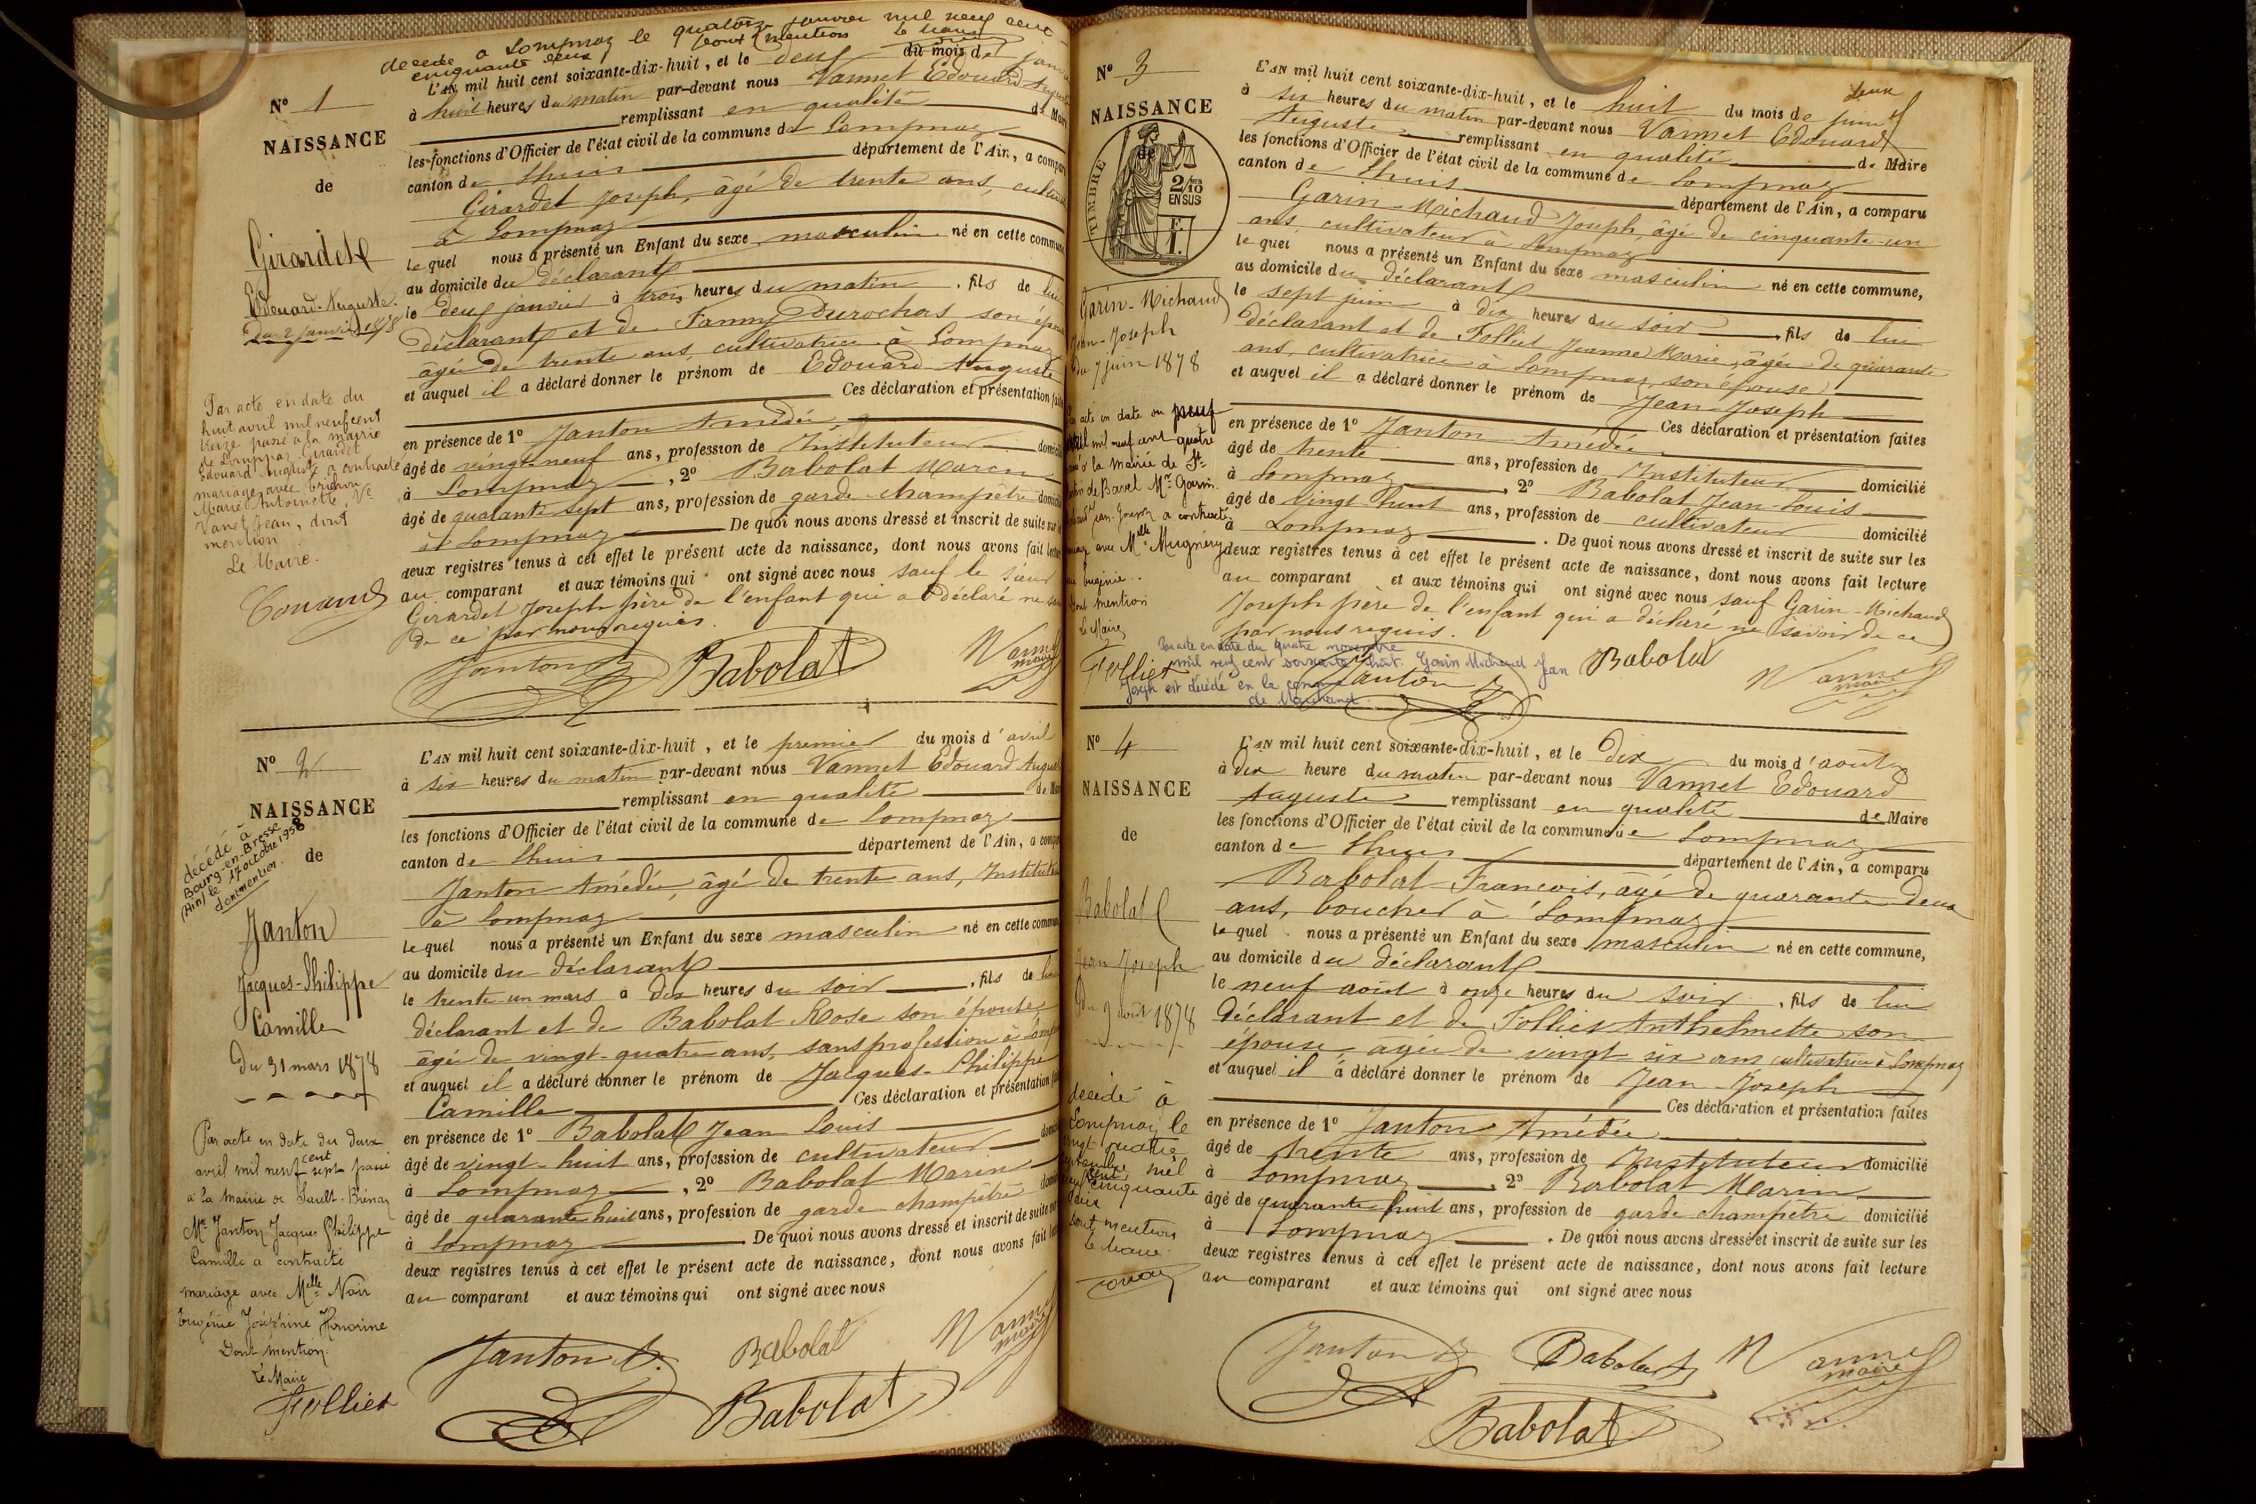 décédé à Lompnaz le quatorze janvier mil neuf cent
cinquante deux dont mention le Maire
N° 1
NAISSANCE
de
Girardet
Edouard-Auguste
Du 2 janvier 1878
Par acte en date du
huit avril mil neuf cent
treize passé à la mairie
de Lompnaz Girardet
Edouard Auguste a contracté
mariage avec
Marie Antoinette, Ve
Vanel Jean, dont
mention
Le Maire.
L'AN mil huit cent soixante-dix-huit, et le deux du mois de janvier
à huit heures du matin par-devant nous Vannet Edouard Auguste
remplissant en qualité de Maire
les fonctions d'Officier de l'état civil de la commune de Lompnaz
canton de Lhuis département de l'Ain, a comparu
Girardet Joseph, âgé de trente ans, cultivateur
à Lompnaz
le quel nous a présenté un Enfant du sexe masculin né en cette commune
au domicile du déclarant
le deux janvier à trois heures du matin, fils de lui
déclarant et de Fanny Durochas son épouse
âgée de trente ans, cultivatrice à Lompnaz
et auquel il a déclaré donner le prénom de Edouard Auguste
Ces déclaration et présentation faites
en présence de 1° Janton Amédée
âgé de vingt-neuf ans, profession de Instituteur domicilié
à Lompnaz, 2° Babolat Marin
âgé de quarante sept ans, profession de garde champêtre domicilié
à Lompnaz De quoi nous avons dressé et inscrit de suite sur les
deux registres tenus à cet effet le présent acte de naissance, dont nous avons fait lecture
au comparant et aux témoins qui ont signé avec nous sauf le sieur
Girardet Joseph père de l'enfant qui a déclaré ne savoir
de ce par nous requis.
Janton Babolat Vannet maire
N° 2
NAISSANCE
de
décédé à
Bourg-en-Bresse
(Ain) le 17 octobre 1958
dont mention.
Janton
Jacques-Philippe
Camille
Du 31 mars 1878
Par acte en date du deux
avril mil neuf cent sept passé
à la mairie de Sault-Brénaz
Mr Janton Jacques Philippe
Camille a contracté
mariage avec Melle Noir
Eugénie Joséphine Honorine
Dont mention.
Le Maire
Follies
L'AN mil huit cent soixante-dix-huit, et le premier du mois d'avril
à six heures du matin par-devant nous Vannet Edouard Auguste
remplissant en qualité de Maire
les fonctions d'Officier de l'état civil de la commune de Lompnaz
canton de Lhuis département de l'Ain, a comparu
Janton Amédée, âgé de trente ans, Instituteur
à Lompnaz
le quel nous a présenté un Enfant du sexe masculin né en cette commune
au domicile du déclarant
le trente un mars à dix heures du soir, fils de lui
déclarant et de Babolat Rose son épouse
âgée de vingt-quatre ans, sans profession à Lompnaz
et auquel il a déclaré donner le prénom de Jacques-Philippe
Camille Ces déclaration et présentation faites
en présence de 1° Babolat Jean Louis
âgé de vingt-huit ans, profession de cultivateur domicilié
à Lompnaz, 2° Babolat Marin
âgé de quarante huit ans, profession de garde champêtre domicilié
à Lompnaz De quoi nous avons dressé et inscrit de suite sur
deux registres tenus à cet effet le présent acte de naissance, dont nous avons fait lecture
au comparant et aux témoins qui ont signé avec nous
Janton A. Babolat Vannet maire
Babolat
N° 3
NAISSANCE
de
TIMBRE
2/10
EN SUS
Garin-Michaud
Jean-Joseph
Du 7 juin 1878
Par acte en date du neuf
avril mil neuf cent quatre
passé à la mairie de St
de Bavel Mr Garin
Michaud Jean-Joseph a contracté
mariage avec Melle Mugnery
Eugénie..
Dont mention
Le Maire
Follies
L'AN mil huit cent soixante-dix-huit, et le huit du mois de juin
à six heures du matin par-devant nous Vannet Edouard
Auguste remplissant en qualité de Maire
les fonctions d'Officier de l'état civil de la commune de Lompnaz
canton de Lhuis département de l'Ain, a comparu
Garin-Michaud Joseph, âgé de cinquante-un
ans, cultivateur à Lompnaz
le quel nous a présenté un Enfant du sexe masculin né en cette commune,
au domicile du déclarant
le sept juin à dix heures du soir, fils de lui
déclarant et de Folliet Jeanne Marie, âgée de quarante
ans, cultivatrice à Lompnaz, son épouse
et auquel il a déclaré donner le prénom de Jean-Joseph
Ces déclaration et présentation faites
en présence de 1° Janton Amédée
âgé de trente ans, profession de Instituteur domicilié
à Lompnaz, 2° Babolat Jean-Louis
âgé de vingt huit ans, profession de cultivateur domicilié
à Lompnaz. De quoi nous avons dressé et inscrit de suite sur les
deux registres tenus à cet effet le présent acte de naissance, dont nous avons fait lecture
au comparant et aux témoins qui ont signé avec nous sauf Garin-Michaud
Joseph père de l'enfant qui a déclaré ne savoir de ce
par nous requis.
Par acte en date du quatre novembre
mil neuf cent soixante huit Garin Michaud Jean
Joseph est décédé en la commune
de
Janton Babolat Vannet maire
N° 4
NAISSANCE
de
Babolat
Jean Joseph
Du 9 août 1878
décédé à
Lompnaz le
vingt quatre
mil
neuf cent cinquante
dont mention
le maire
L'AN mil huit cent soixante-dix-huit, et le dix du mois d'août
à dix heure du matin par-devant nous Vannet Edouard
Auguste remplissant en qualité de Maire
les fonctions d'Officier de l'état civil de la commune de Lompnaz
canton de Lhuis département de l'Ain, a comparu
Babolat François, âgé de quarante deux
ans, boucher à Lompnaz
le quel nous a présenté un Enfant du sexe masculin né en cette commune,
au domicile du déclarant
le neuf août à onze heures du soir, fils de lui
déclarant et de Folliet Anthelmette son
épouse âgée de vingt six ans cultivatrice à Lompnaz
et auquel il a déclaré donner le prénom de Jean-Joseph
Ces déclaration et présentation faites
en présence de 1° Janton Amédée
âgé de trente ans, profession de Instituteur domicilié
à Lompnaz, 2° Babolat Marin
âgé de quarante huit ans, profession de garde champêtre domicilié
à Lompnaz. De quoi nous avons dressé et inscrit de suite sur les
deux registres tenus à cet effet le présent acte de naissance, dont nous avons fait lecture
au comparant et aux témoins qui ont signé avec nous
Janton Babolat Vannet maire
Babolat